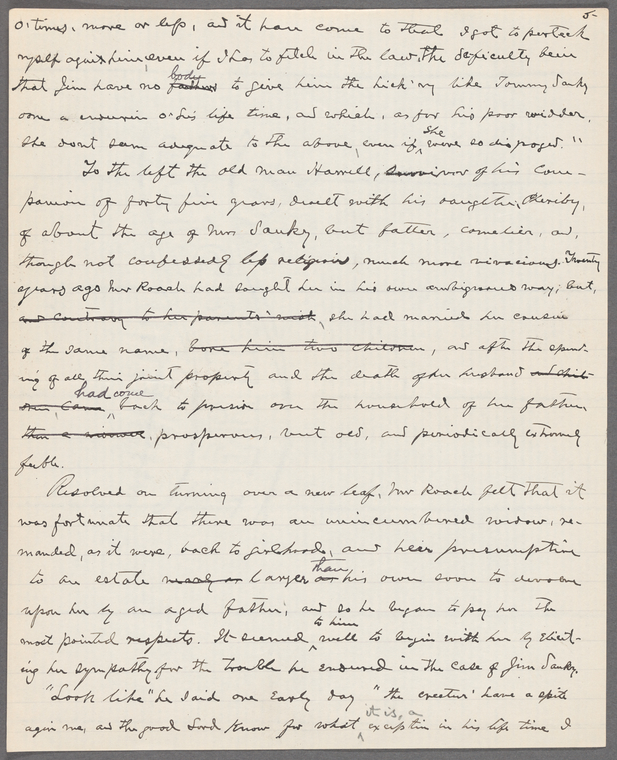 5-
o' times, more or less, and it have come to that I got to pertect
myself against him, even if I has to fetch in the law, the difficulty bein
that Jim have no body father to give him the hick'ry like Tommy Sanky
one a endurin o' his life time, and which, as for his poor widder,
she dont seem adequate to the above, even if she were so disposed."
To the left the old man Harrell, survivor of his com-
panion of forty five years, dwelt with his daughter,
of about the age of Mrs Sanky, but fatter, comelier, and,
though not confessedly less religious, much more vivacious. Twenty
years ago Mr Roach had sought her in his own ambiguous way; but,
and contrary to her parents' wish, she had married her cousin
of the same name, bore him two children, and after the spend-
ing of all their joint property and the death of her husband and child-
ren, came had come back to preside over the household of her father
then a widower, prosperous, but old, and periodically extremely
feeble.
Resolved on turning over a new leaf, Mr Roach felt that it
was fortunate that there was an unincumbered widow, re-
manded, as it were, back to girlhood, and heir presumptive
to an estate nearly as larger as than his own soon to devolve
upon her by an aged father; and so he began to pay her the
most pointed respects. It seemed to him well to begin with her by elicit-
ing her sympathy for the trouble he endured in the case of Jim Sanky.
"Look like" he said one early day "the creeter' have a spite
agin me, and the good Lord know for what it is, a exceptin in his life time I